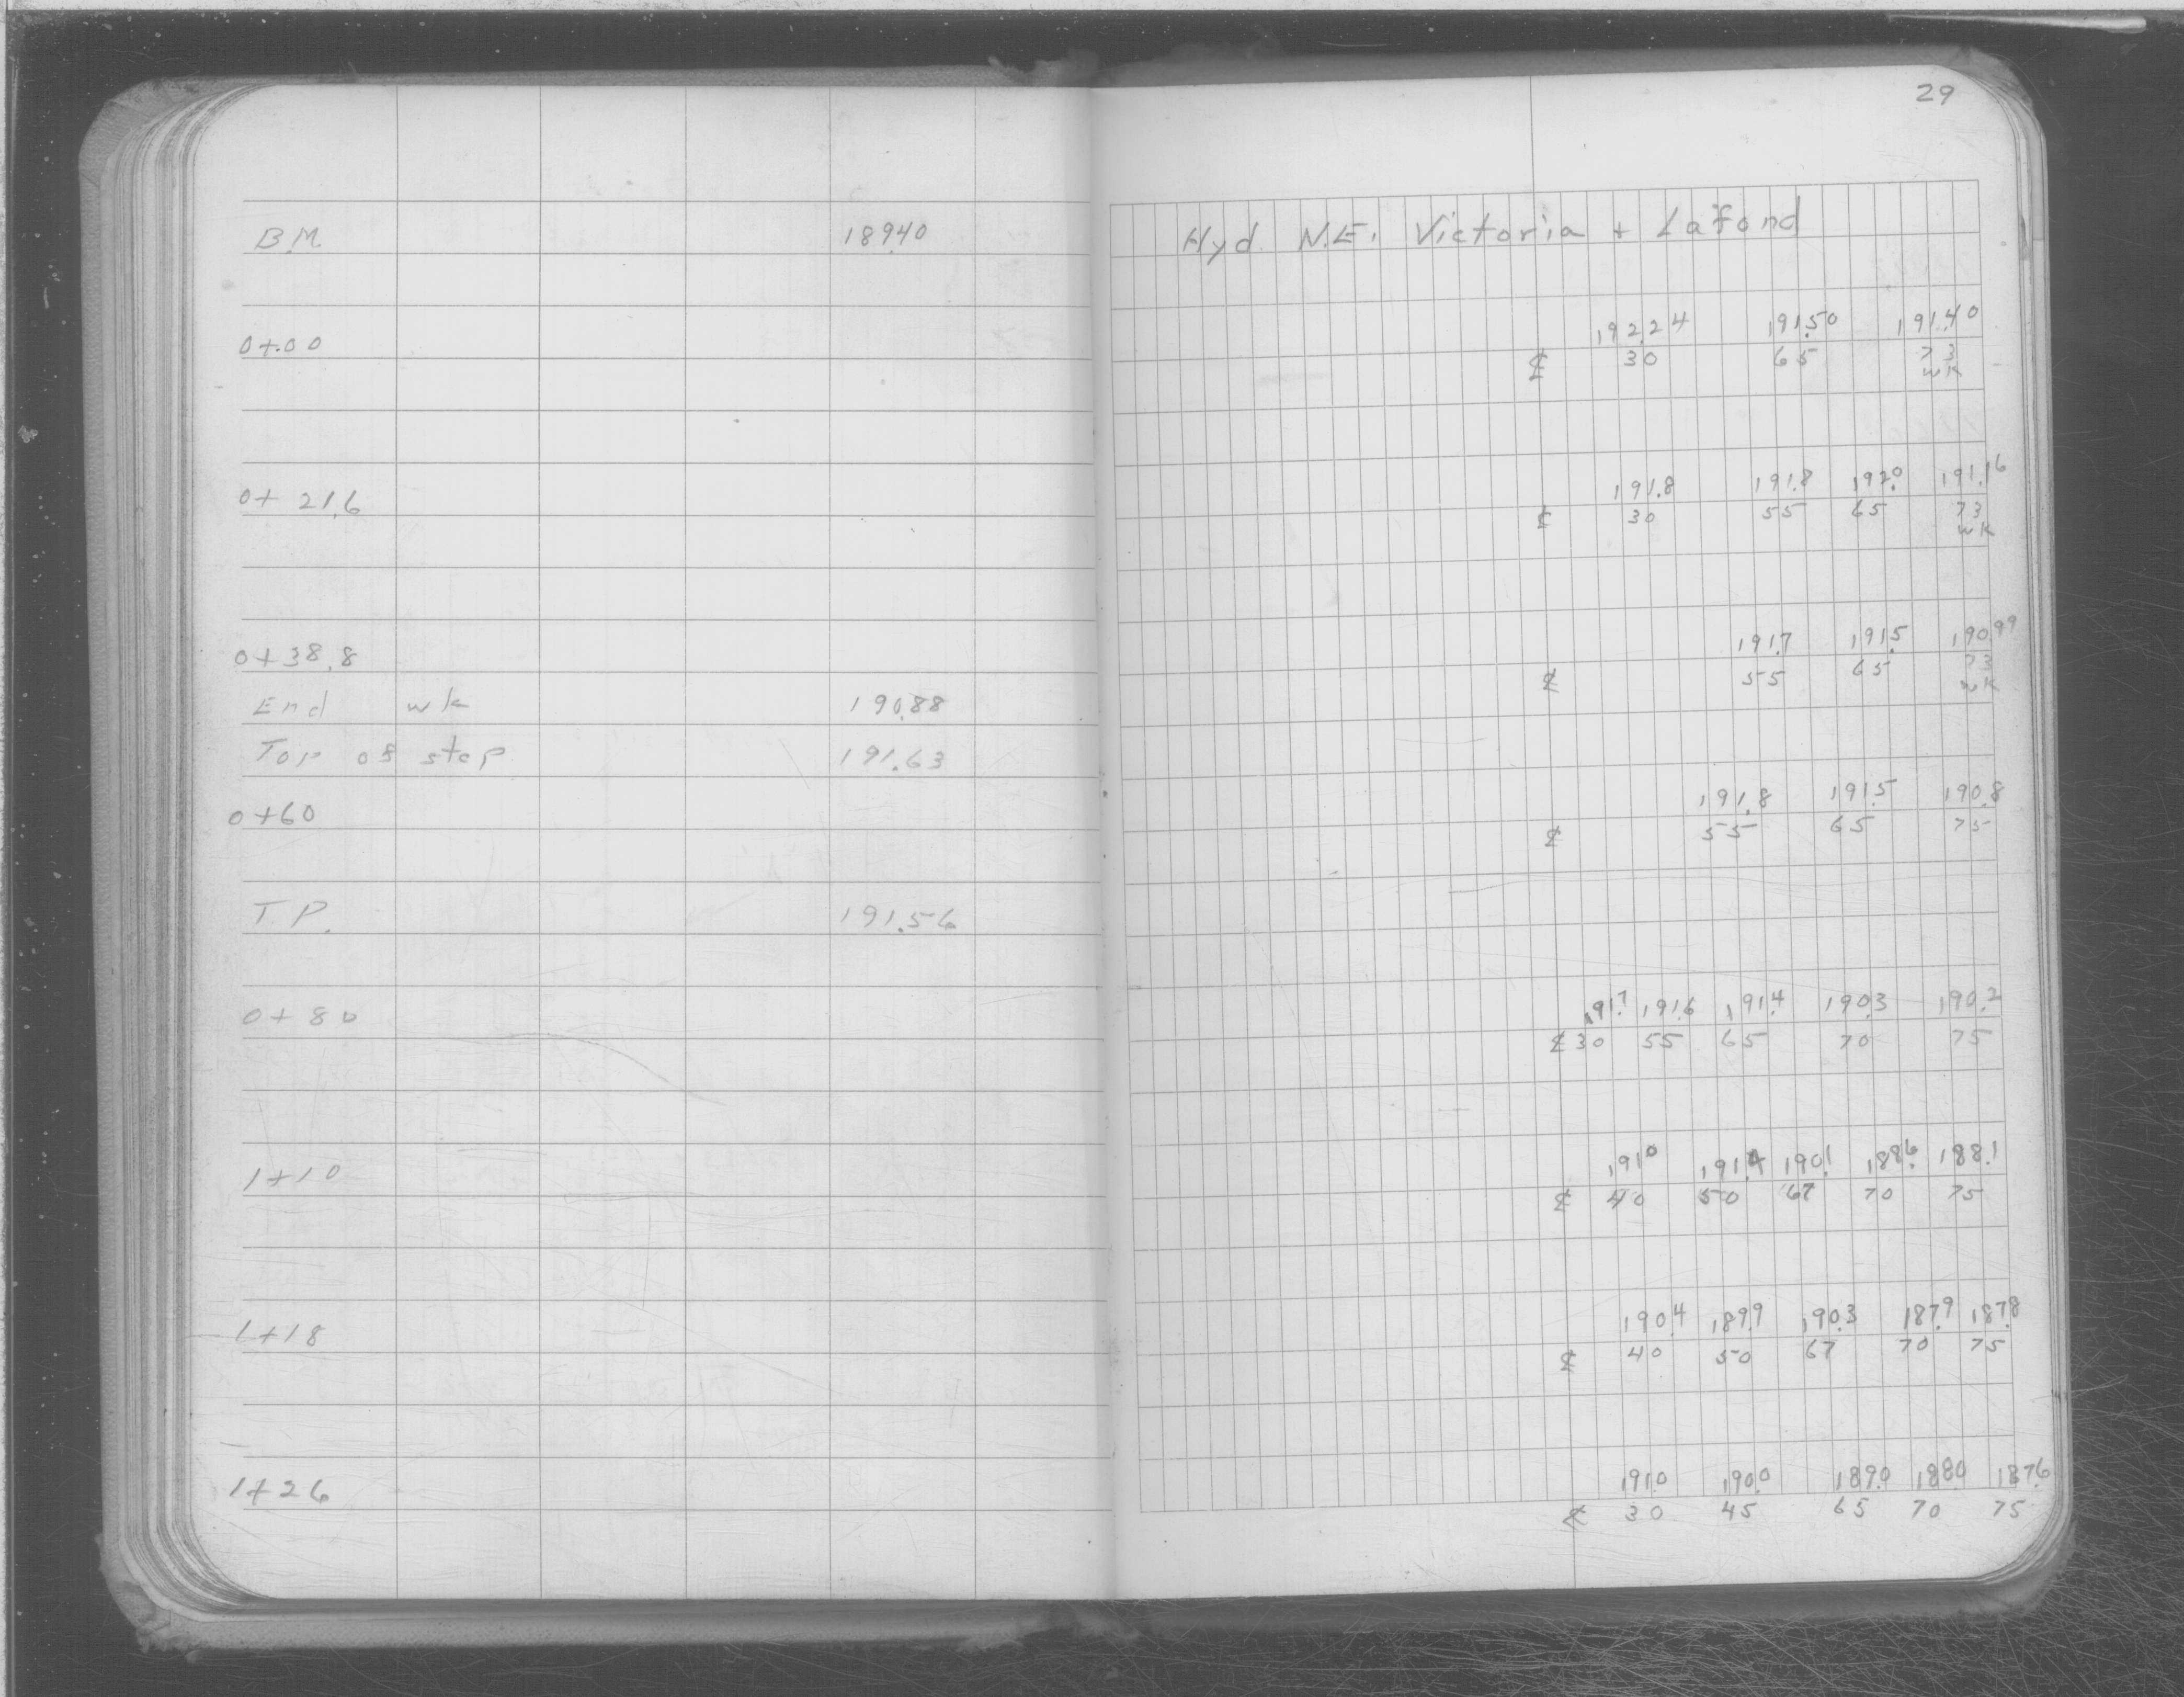 29
B.M. 189.40 Hyd. N.E. Victoria + Lafond
0+00 192.24 191.50 191.40
℄ 30 65 73
wk
0+21.6 191.8 191.8 192.0 191.16
℄ 30 55 65 73
wk
0+38.8 191.7 191.5 190.99
℄ 55 65 73
End wk 190.88 wk
Top of step 191.63
0+60 191.8 191.5 190.8
℄ 55 65 75
T.P. 191.56
0+80 191.7 191.6 191.4 190.3 190.2
℄ 30 55 65 70 75
1+10 191.0 191.4 190.1 188.6 188.1
℄ 40 50 67 70 75
1+18 190.4 189.9 190.3 187.9 187.8
℄ 40 50 67 70 75
1+26 191.0 190.0 189.0 188.0 187.6
℄ 30 45 65 70 75